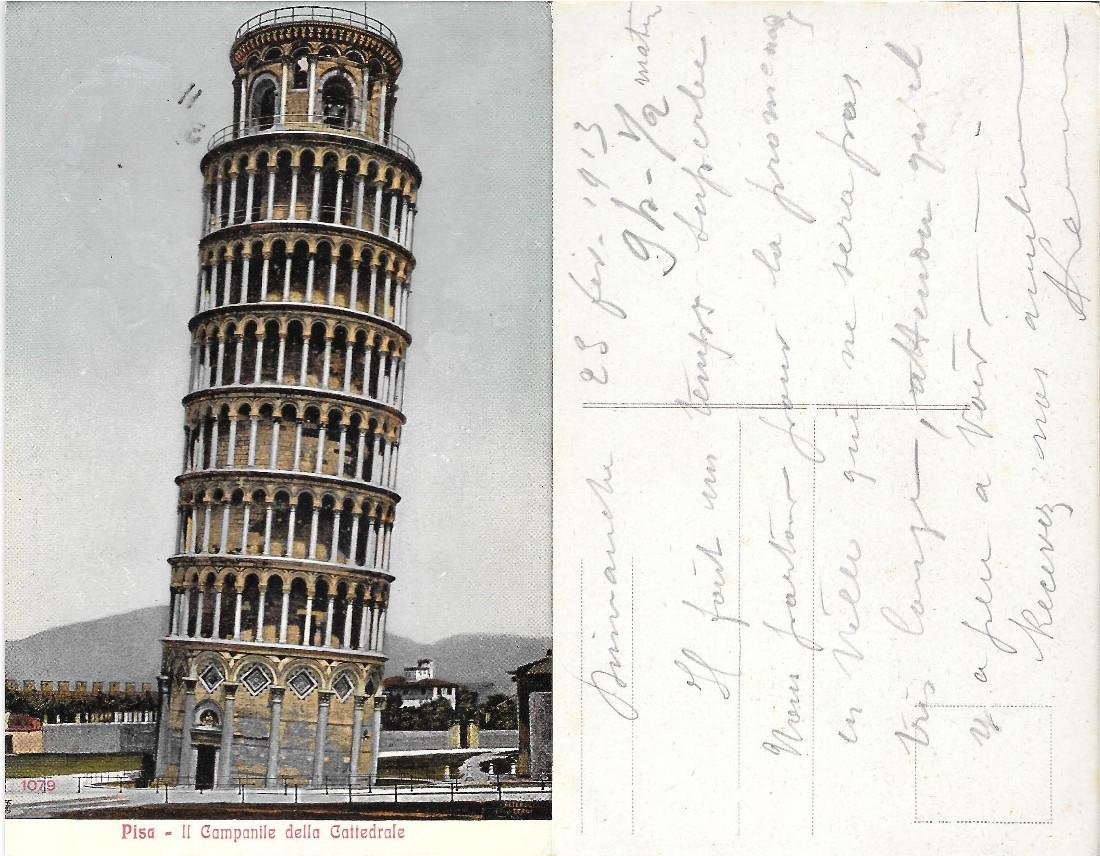 1079
Pisa - Il Campanile della Cattedrale
Dimanche 23 fev. 1913
9 h - 1/2 matin
Il fait un temps superbe
Nous partons pour la promenade
en Ville qui ne sera pas
très longue, attendu qu'il
y a peu a voir
Recevez nos